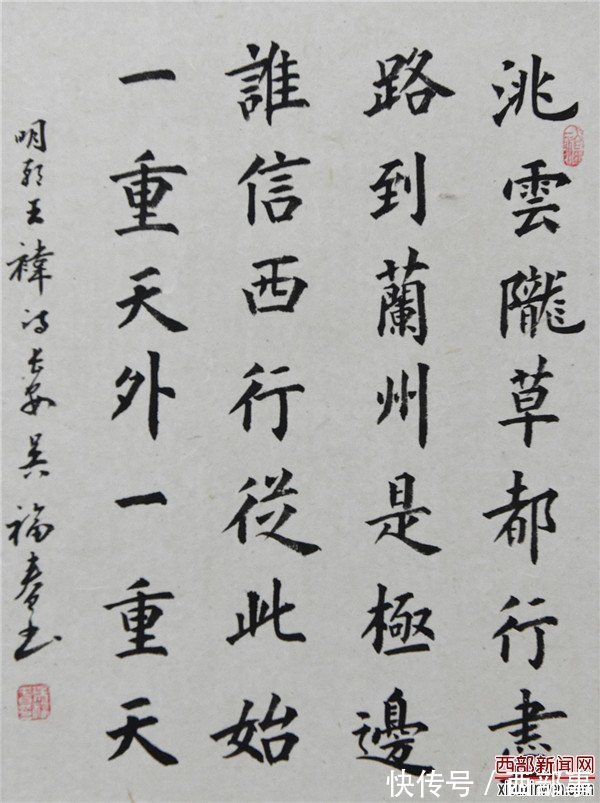 洮雲隴草都行盡
路到蘭州是極邊
誰信西行從此始
一重天外一重天
明朝王禕诗長安吴福春书
西部新闻网
快传号